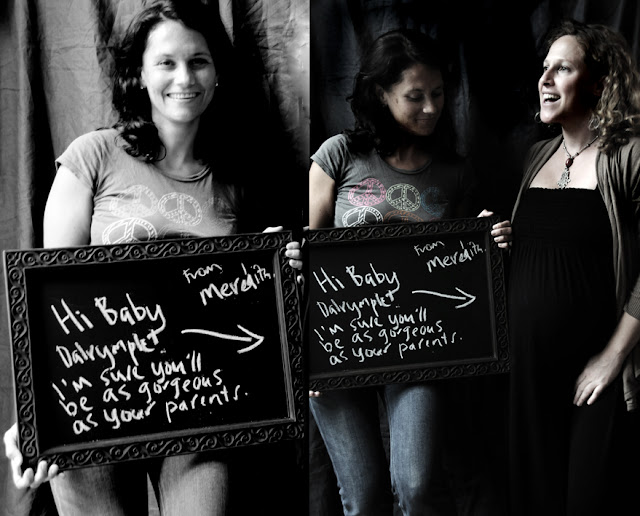 From
meredith.
Hi Baby
Dalrymple!
I'm sure you'll
be as gorgeous
as your parents.
From
meredith.
Hi Baby
Dalrymple!
I'm sure you'll
be as gorgeous
as your parents.